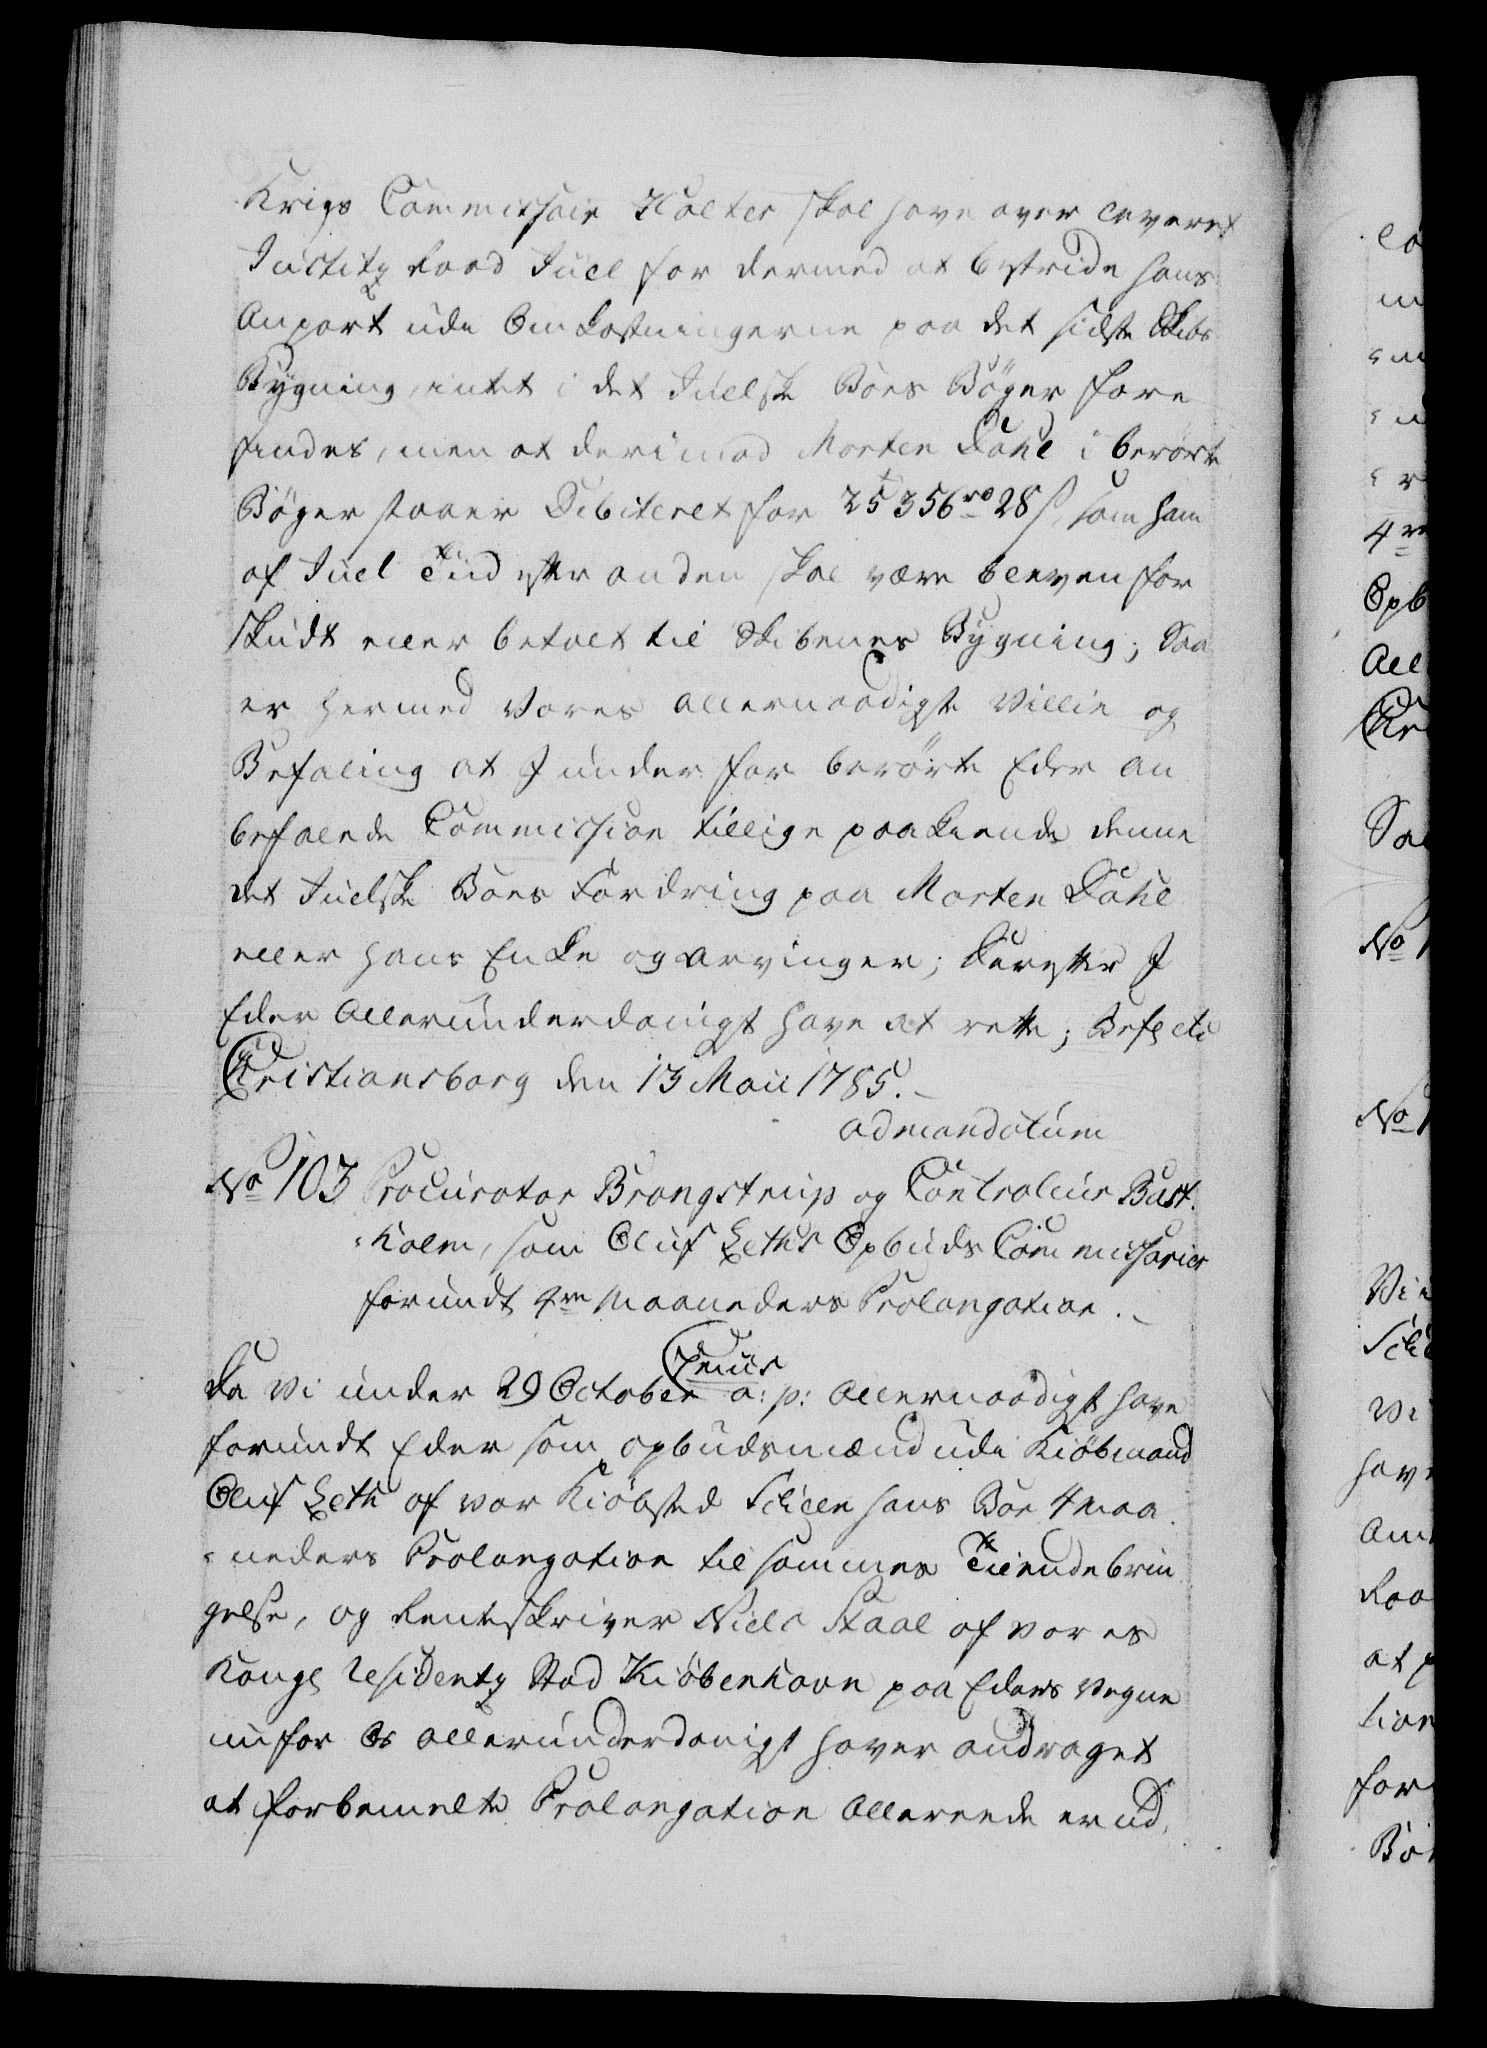 Krigs Commissair Holter skal have over leveret
Justitz Raad Juel for dermed at bestride hans
Anpart udi Omkostningerne paa det sidste Skibs
Bygning, intet i det Juelske Boes Bøger fore
findes, men at derimod Morten Dahl i berørte
Bøger staaer Debiteret for 25356 rd 28 s, som ham
af Juel Tiid efter anden skal være bleven for
skudt eller betalt til Skibenes Bygning; Saa
er hermed Vores allernaadigste Villie og
Befaling at I under for berørte Eder an
befalede Commission tillige paakiende denne
det Juelske Boes Fordring paa Morten Dahl
eller hans Enke og Arvinger; Derefter I
Eder Allerunderdanigst have at rette; Befal etc
Christiansborg den 13 Maii 1785.
admandatum
No 103 Procurator Brangstrup og Controleur Bast-
holm, som Oluf Leths Opbuds Commissarier
forundt 4re Maaneders Prolongation.
Da Vi under 29 October a: p: Allernaadigst have
forundt Eder som opbudsmænd udi Kiøbmand
Oluf Leth af vor Kiøbsted hans Boe 4 maa
neders Prolongation til sammes Tilendebrin
gelse, og Renteskriver Niels Staal af vores
Kongl Residentz Stad Kiøbenhavn paa Eders Vegne
nu for Os allerunderdanigst haver andraget
at forbemelte Prolongation Allereede er ud,